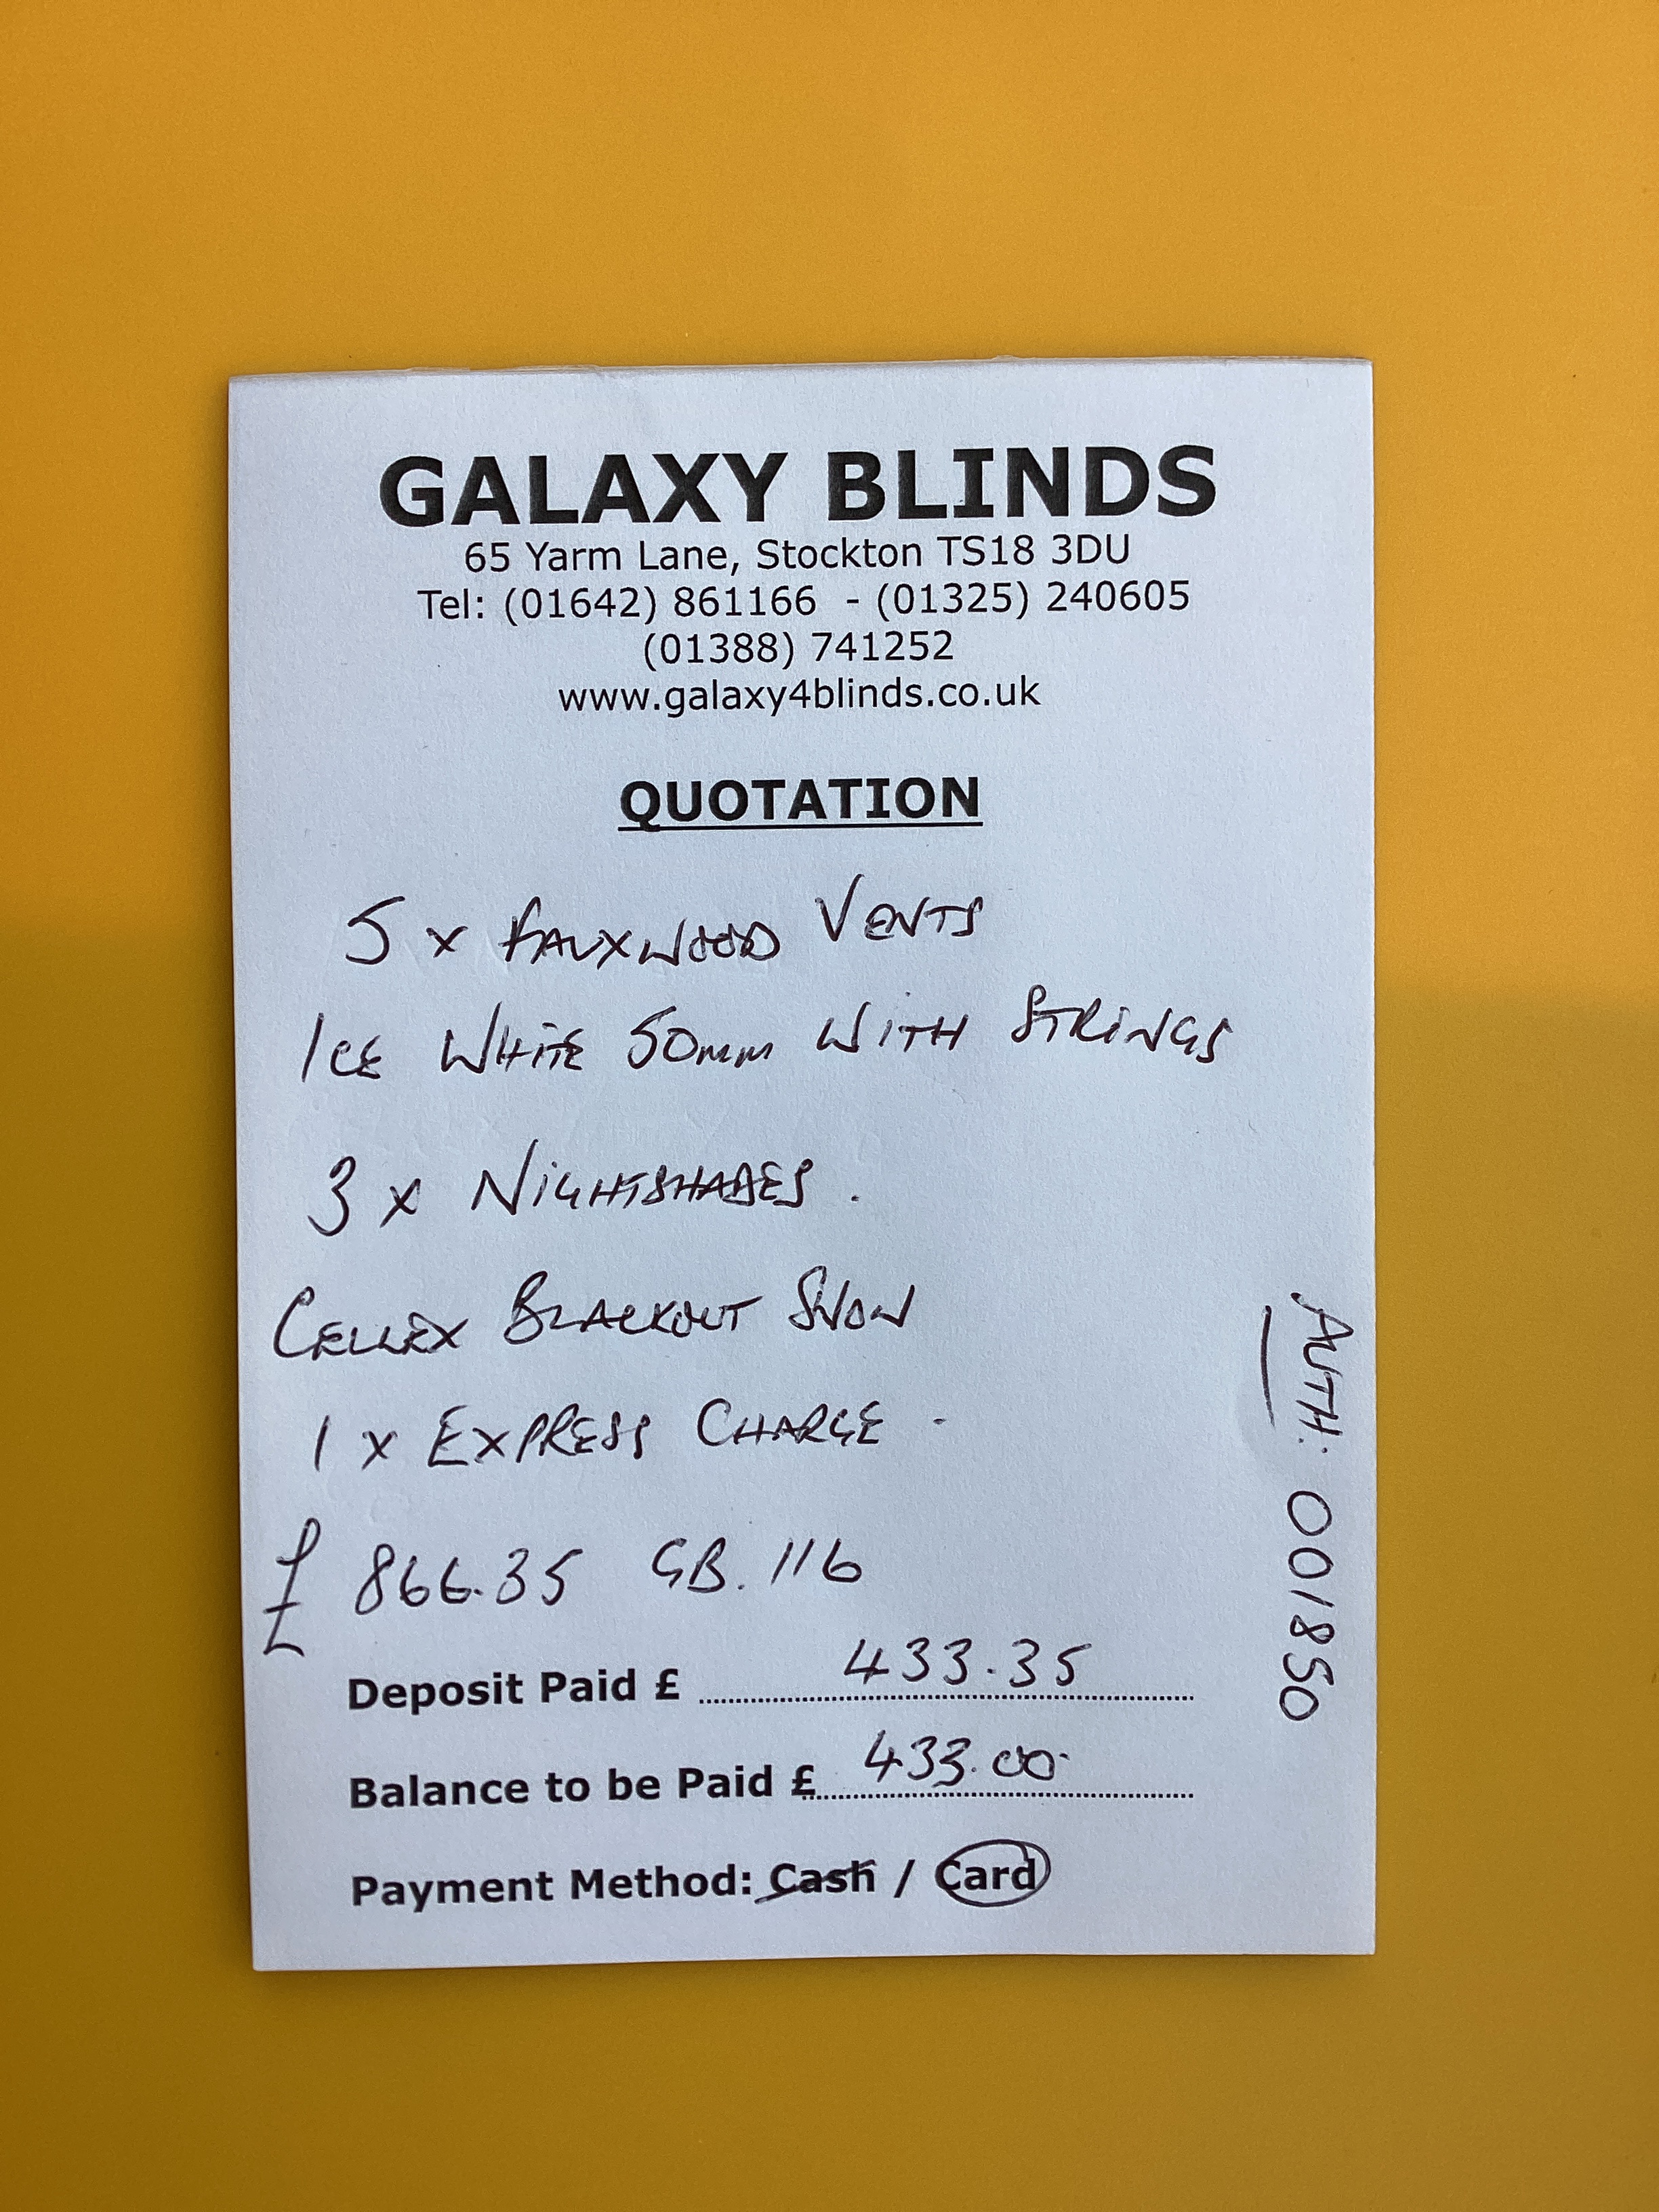 GALAXY BLINDS
65 Yarm Lane, Stockton TS18 3DU
Tel: (01642) 861166 - (01325) 240605
(01388) 741252
www.galaxy4blinds.co.uk
QUOTATION
5 x FAUXWOOD VENTS
ICE WHITE 50mm WITH STRINGS
3 x NIGHTSHADES.
CELLEX BLACKOUT SNOW
1 x EXPRESS CHARGE.
£ 866.35 GB.116
Deposit Paid £ 433.35
Balance to be Paid £ 433.00
Payment Method: Cash / Card
AUTH: 001850